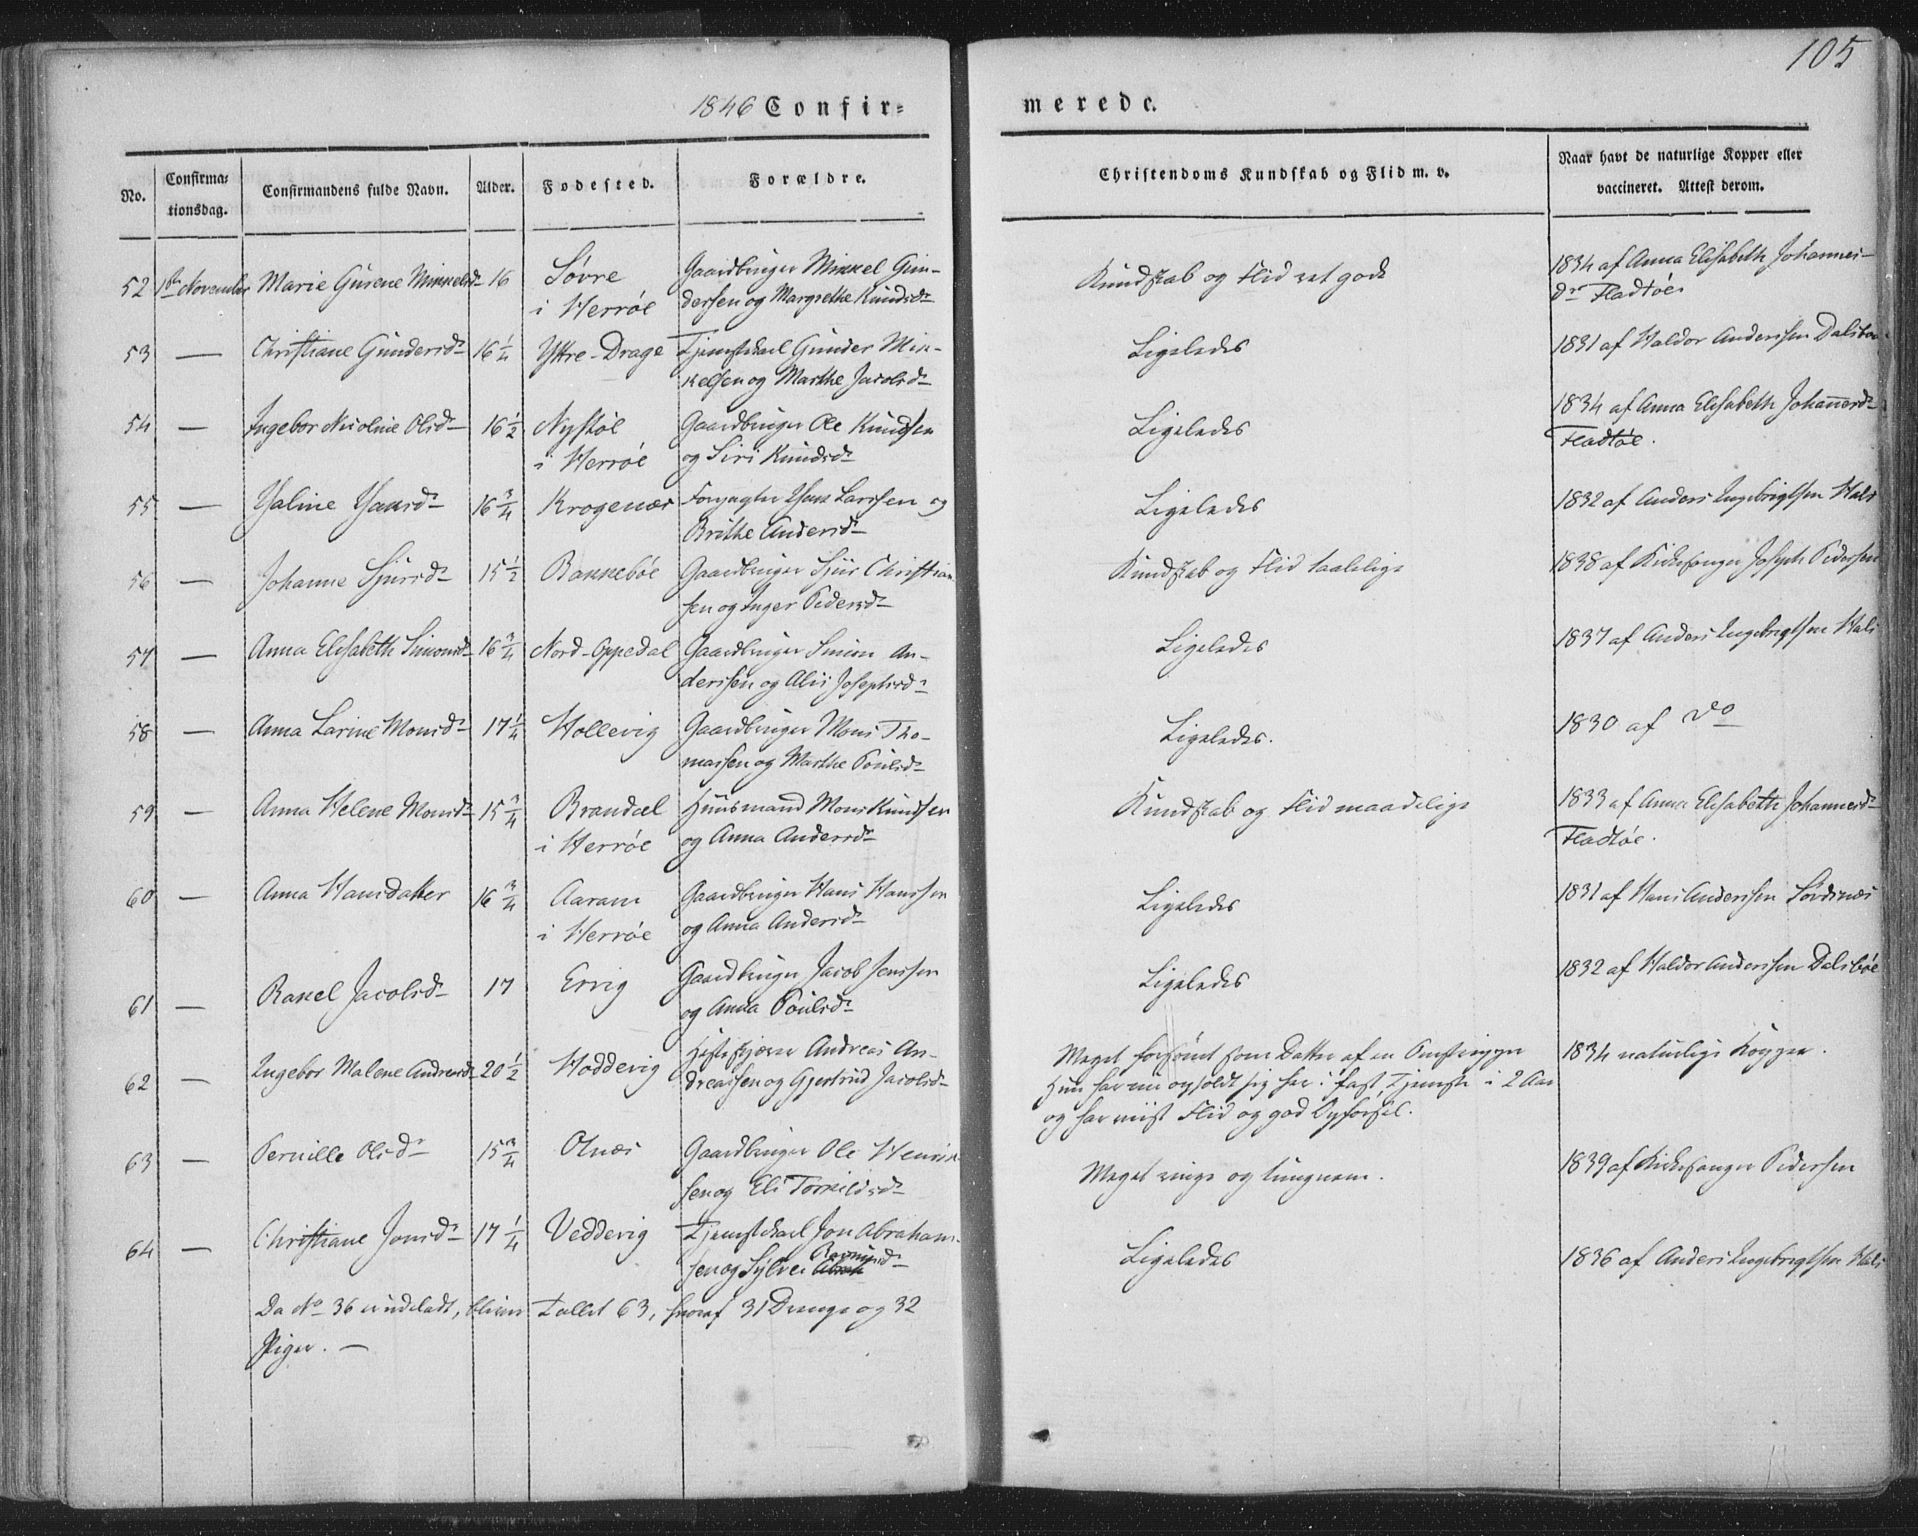 105
1846 Confir=
merede.
No.
Confirma=
tionsdag.
Confirmandens fulde Navn.
Alder.
Fødested.
Forældre.
Christendoms Kundskab og Flid m. v.
Naar havt de naturlige Kopper eller
vaccineret. Attest derom.
52 1ste November Marie Gurene Mikkelsdr 16 Søvre Gaardbruger Mikkel Gun-
i Herrøe dersen og Margrethe Knudsdr
Kundskab og Flid ret gode
1834 af Anna Elisabeth Johannes-
dr Fladtøe
53 — Christiane Gundersdr 16 1/4 Yttre-Drage Tjenstekarl Gunder Mik-
kelsen og Marthe Jacobsdr
Ligeledes
1831 af Haldor Anderssen Dalsbøe
54 — Ingebor Nicoline Olsdr 16 1/2 Nystøl Gaardbruger Ole Knudsen
i Herrøe og Siri Knudsdr
Ligeledes
1834 af Anna Elisabeth Johannesdr
Fladtøe.
55 — Haline Hansdr 16 3/4 Krogenæs Forpagter Hans Larssen og
Brithe Andersdr
Ligeledes
1832 af Anders Ingebrigtsen Hals
56 — Johanne Sjursdr 15 1/2 Bannebøe Gaardbruger Sjur Christian-
sen og Inger Pedersdr
Kundskab og Flid taalelige
1838 af Kirkesanger Joseph Pedersen
57 — Anna Elisabeth Simonsdr 16 3/4 Nord-Oppedal Gaardbruger Simon An-
derssen og Alis Josephsdr
Ligeledes
1837 af Anders Ingebrigtsen Hals
58 — Anna Larine Monsdr 17 1/4 Hollevig Gaardbruger Mons Tho-
massen og Marthe Poulsdr
Ligeledes.
1830 af do
59 — Anna Helene Monsdr 15 3/4 Brandal Huusmand Mons Knudsen
i Herrøe og Anna Andersdr
Kundskab og Flid maadelige
1833 af Anna Elisabeth Johannesdr
Fladtøe.
60 — Anna Hansdatter 16 3/4 Aaram Gaardbruger Hans Hanssen
i Herrøe og Anna Andersdr
Ligeledes
1831 af Hans Anderssen Sørdsnæs
61 — Rakel Jacobsdr 17 Ervig Gaardbruger Jacob Jenssen
og Anna Poulsdr
Ligeledes
1832 af Haldor Anderssen Dalsbøe
62 — Ingebor Malene Andreasdr 20 1/2 Hoddevig Andreas An-
dreassen og Gjertrud Jacobsdr
Meget forsømt som Datter af en Omstrippe
Hun har nu opholdt sig her i fast Tjeneste i 2 Aar
og har viist Flid og god Opførsel.
1834 naturlige Kopper.
63 — Pernille Olsdr 15 3/4 Otnæs Gaardbruger Ole Henrik-
sen og Eli Torkildsdr
Meget ringe og tungnem.
1839 af Kirkesanger Pedersen
64 — Christiane Jonsdr 17 1/4 Vedvig Tjenstekarl Jon Abraham-
sen og Sylvei Rasmusdr
Ligeledes
1836 af Anders Ingebrigtsen Hals
Da No 36 er udeladt, bliver Tallet 63, hvoraf 31 Drenge og 32
Piger. —